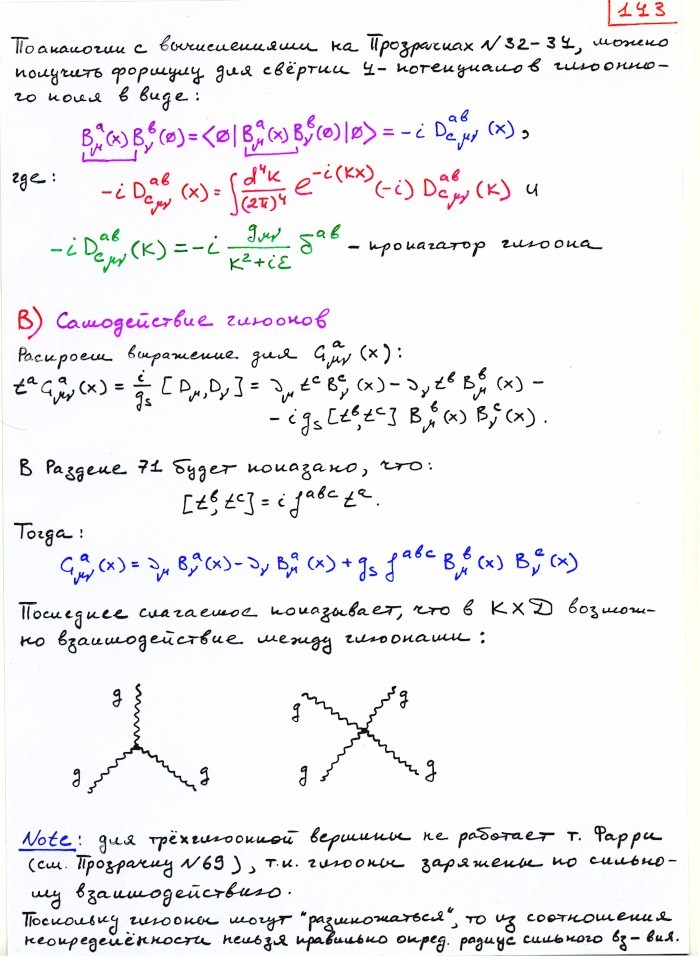 143
По аналогии с вычислениями на Прозрачках №32-34, можно
получить формулу для свёртки 4-потенциалов глюонно-
го поля в виде:
B^a_μ(x) B^b_ν(∅) = <∅| B^a_μ(x) B^b_ν(∅) |∅> = -i D^{ab}_{c μν}(x),
где: -i D^{ab}_{c μν}(x) = ∫ d⁴k/(2π)⁴ e^{-i(kx)} (-i) D^{ab}_{c μν}(k) и
-i D^{ab}_{c μν}(k) = -i g_{μν}/(k²+iε) δ^{ab} - пропагатор глюона
В) Самодействие глюонов
Раскроем выражение для G^a_{μν}(x):
t^a G^a_{μν}(x) = i/g_s [D_μ, D_ν] = ∂_μ t^c B^c_ν(x) - ∂_ν t^b B^b_μ(x) -
- i g_s [t^b, t^c] B^b_μ(x) B^c_ν(x).
В Разделе 71 будет показано, что:
[t^b, t^c] = i f^{abc} t^a.
Тогда:
G^a_{μν}(x) = ∂_μ B^a_ν(x) - ∂_ν B^a_μ(x) + g_s f^{abc} B^b_μ(x) B^c_ν(x)
Последнее слагаемое показывает, что в КХД возмож-
но взаимодействие между глюонами:
g
g g
g g
g g
Note: для трёхглюонной вершины не работает т. Фарри
(см. Прозрачку №69), т.к. глюоны заряжены по сильно-
му взаимодействию.
Поскольку глюоны могут "размножаться", то из соотношения
неопределённости нельзя правильно опред. радиус сильного вз-вия.